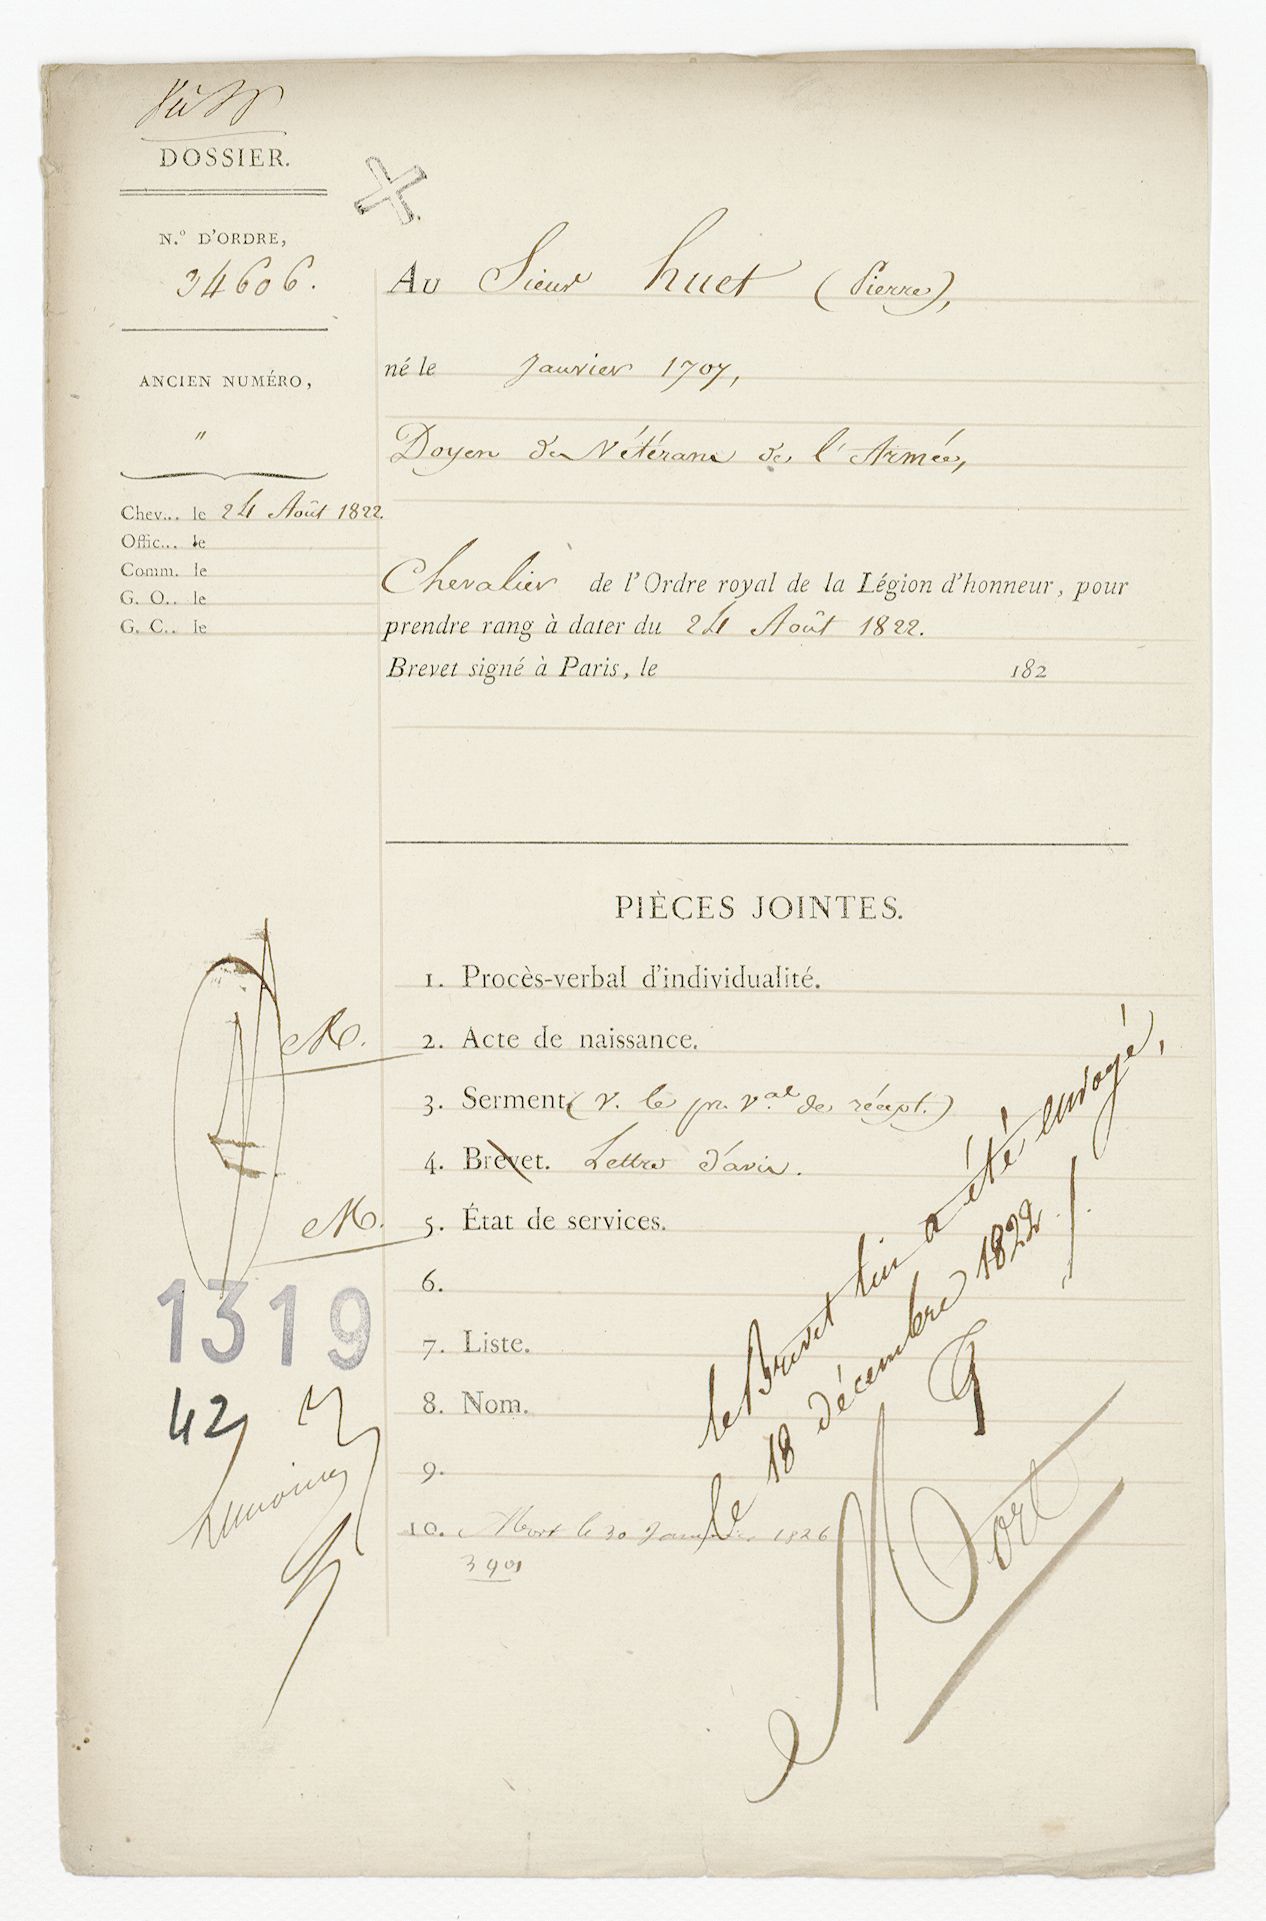 DOSSIER.
N.° D'ORDRE,
34606.
ANCIEN NUMÉRO,
"
Chev... le 24 Août 1822.
Offic... le
Comm. le
G. O.. le
G. C.. le
Au Sieur huet (Pierre),
né le Janvier 1707,
Doyen des Vétérans de l'Armée,
Chevalier de l'Ordre royal de la Légion d'honneur, pour
prendre rang à dater du 24 Août 1822.
Brevet signé à Paris, le 182
PIÈCES JOINTES.
1. Procès-verbal d'individualité.
M. 2. Acte de naissance.
3. Serment. (V. le pr. v.al de récept.)
4. Brevet. Lettre d'avis.
M. 5. État de services.
6.
7. Liste.
8. Nom.
9.
10. Mort le 30 Janvier 1826
le Brevet lui a été envoyé,
le 18 décembre 1822.
Mort
1319
42